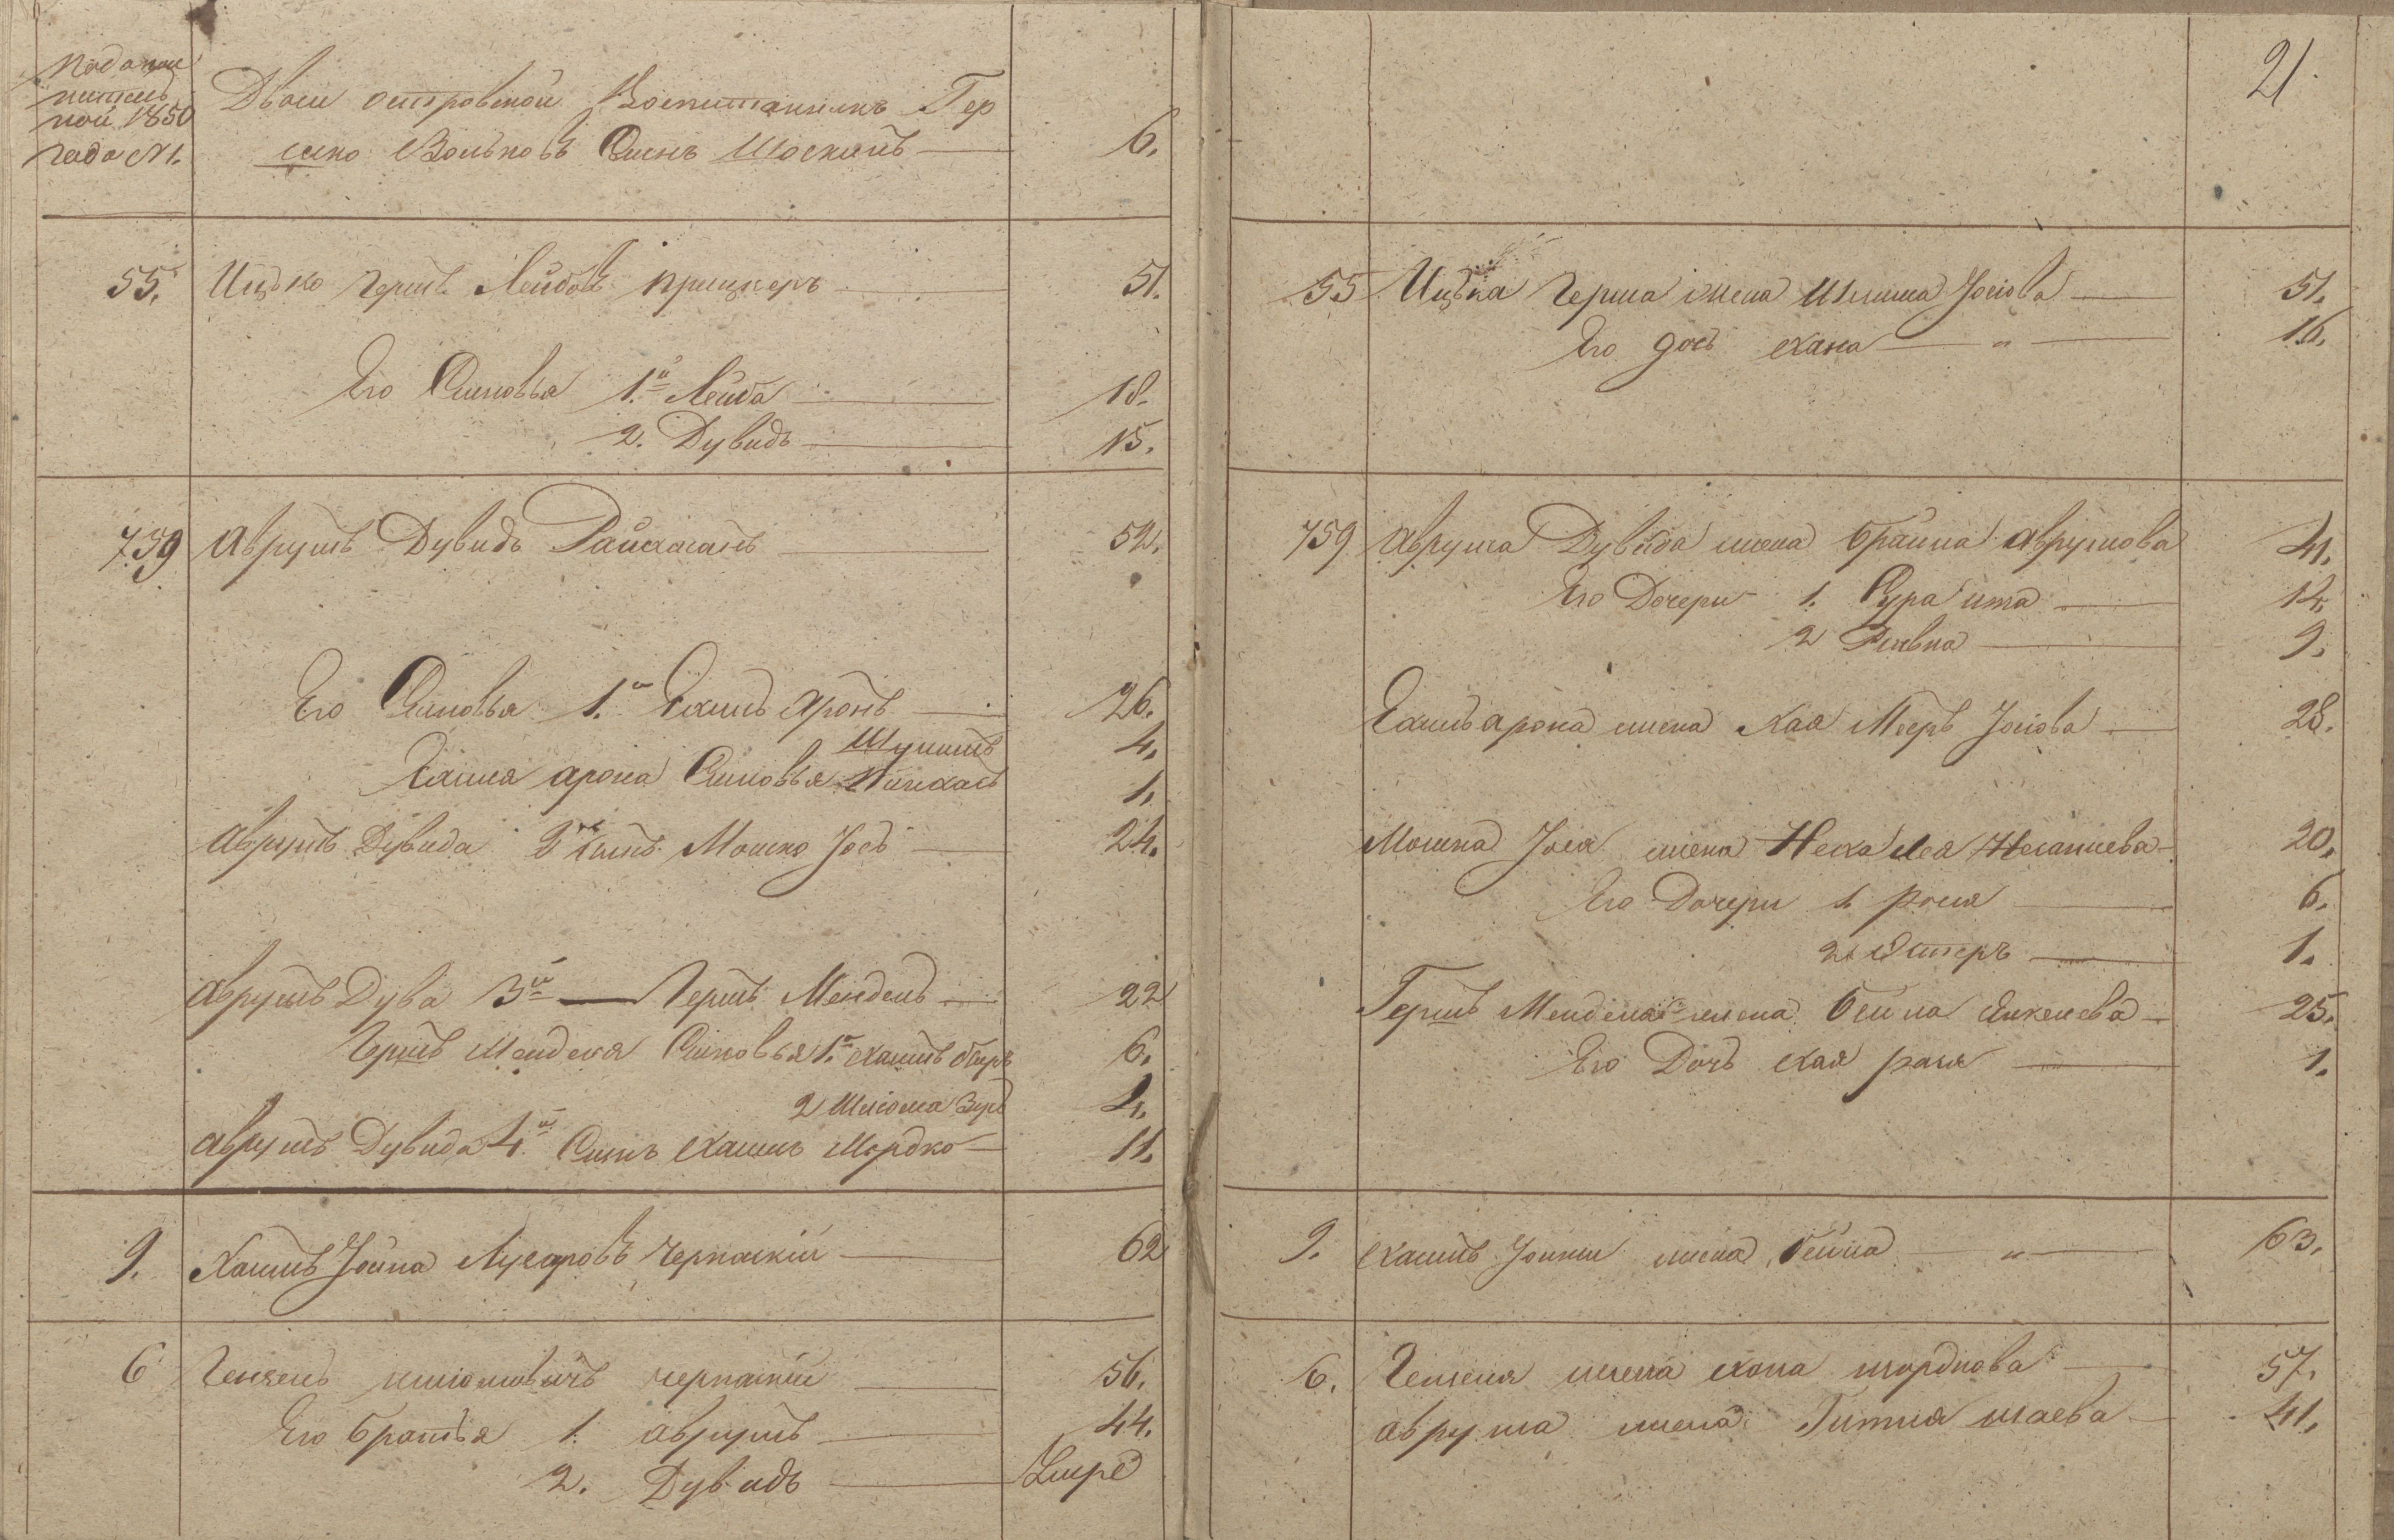 По дополнительной 1850 года №1.
Двоси островской Воспитанникъ Гер
шко Вольковъ Сынъ Шоскинъ 6.
55. Ицко Гершъ Лейбовъ прицкеръ 51.
Его Сыновья 1.й Лейба 18.
2. Дувидъ 15.
759 Аврумъ Дувидъ 52.
Его Сыновья 1.й Хаимъ Аронъ 26.
Шулимъ 4.
Хаима арона Сыновья Пинхасъ 1.
аврумъ Дувида 2й сынъ Мошко Іосъ 24.
аврумъ Дува 3й — Гершъ Мендель 22
Гершъ Менделя Сыновья 1.й Хаимъ 6.
2 Шліома 4.
аврумъ Дувида 4.й Сынъ Хаимъ Мордко 11.
9. Хаимъ Іойна Лузаровъ Черкаскій 62
6 Гензель Шліомовичъ черкаскій 56.
Его братья 1. аврумъ 44.
2. Дувидъ Умре
21.
55 Ицька Герша жена Іосіова 51.
Его дочь Хана " 16.
759 аврума Дувида жена брайна аврумова 41.
Его Дочери 1. Сура ита 14.
2 Ривка 9.
Хаимъ арона жена Хая Мееръ Іосіова 28.
Мошка Іося жена Неха Лея 20.
Его Дочери 1. рося 6.
2. Эстеръ 1.
Гершъ Менделя жена бейла Янкелева 25.
Его Дочь Хая рося 1.
9. Хаимъ Іойны жена бейла " 63.
6. Гензеля жена Хона мордкова 57.
аврума жена Гитля шаева 41.